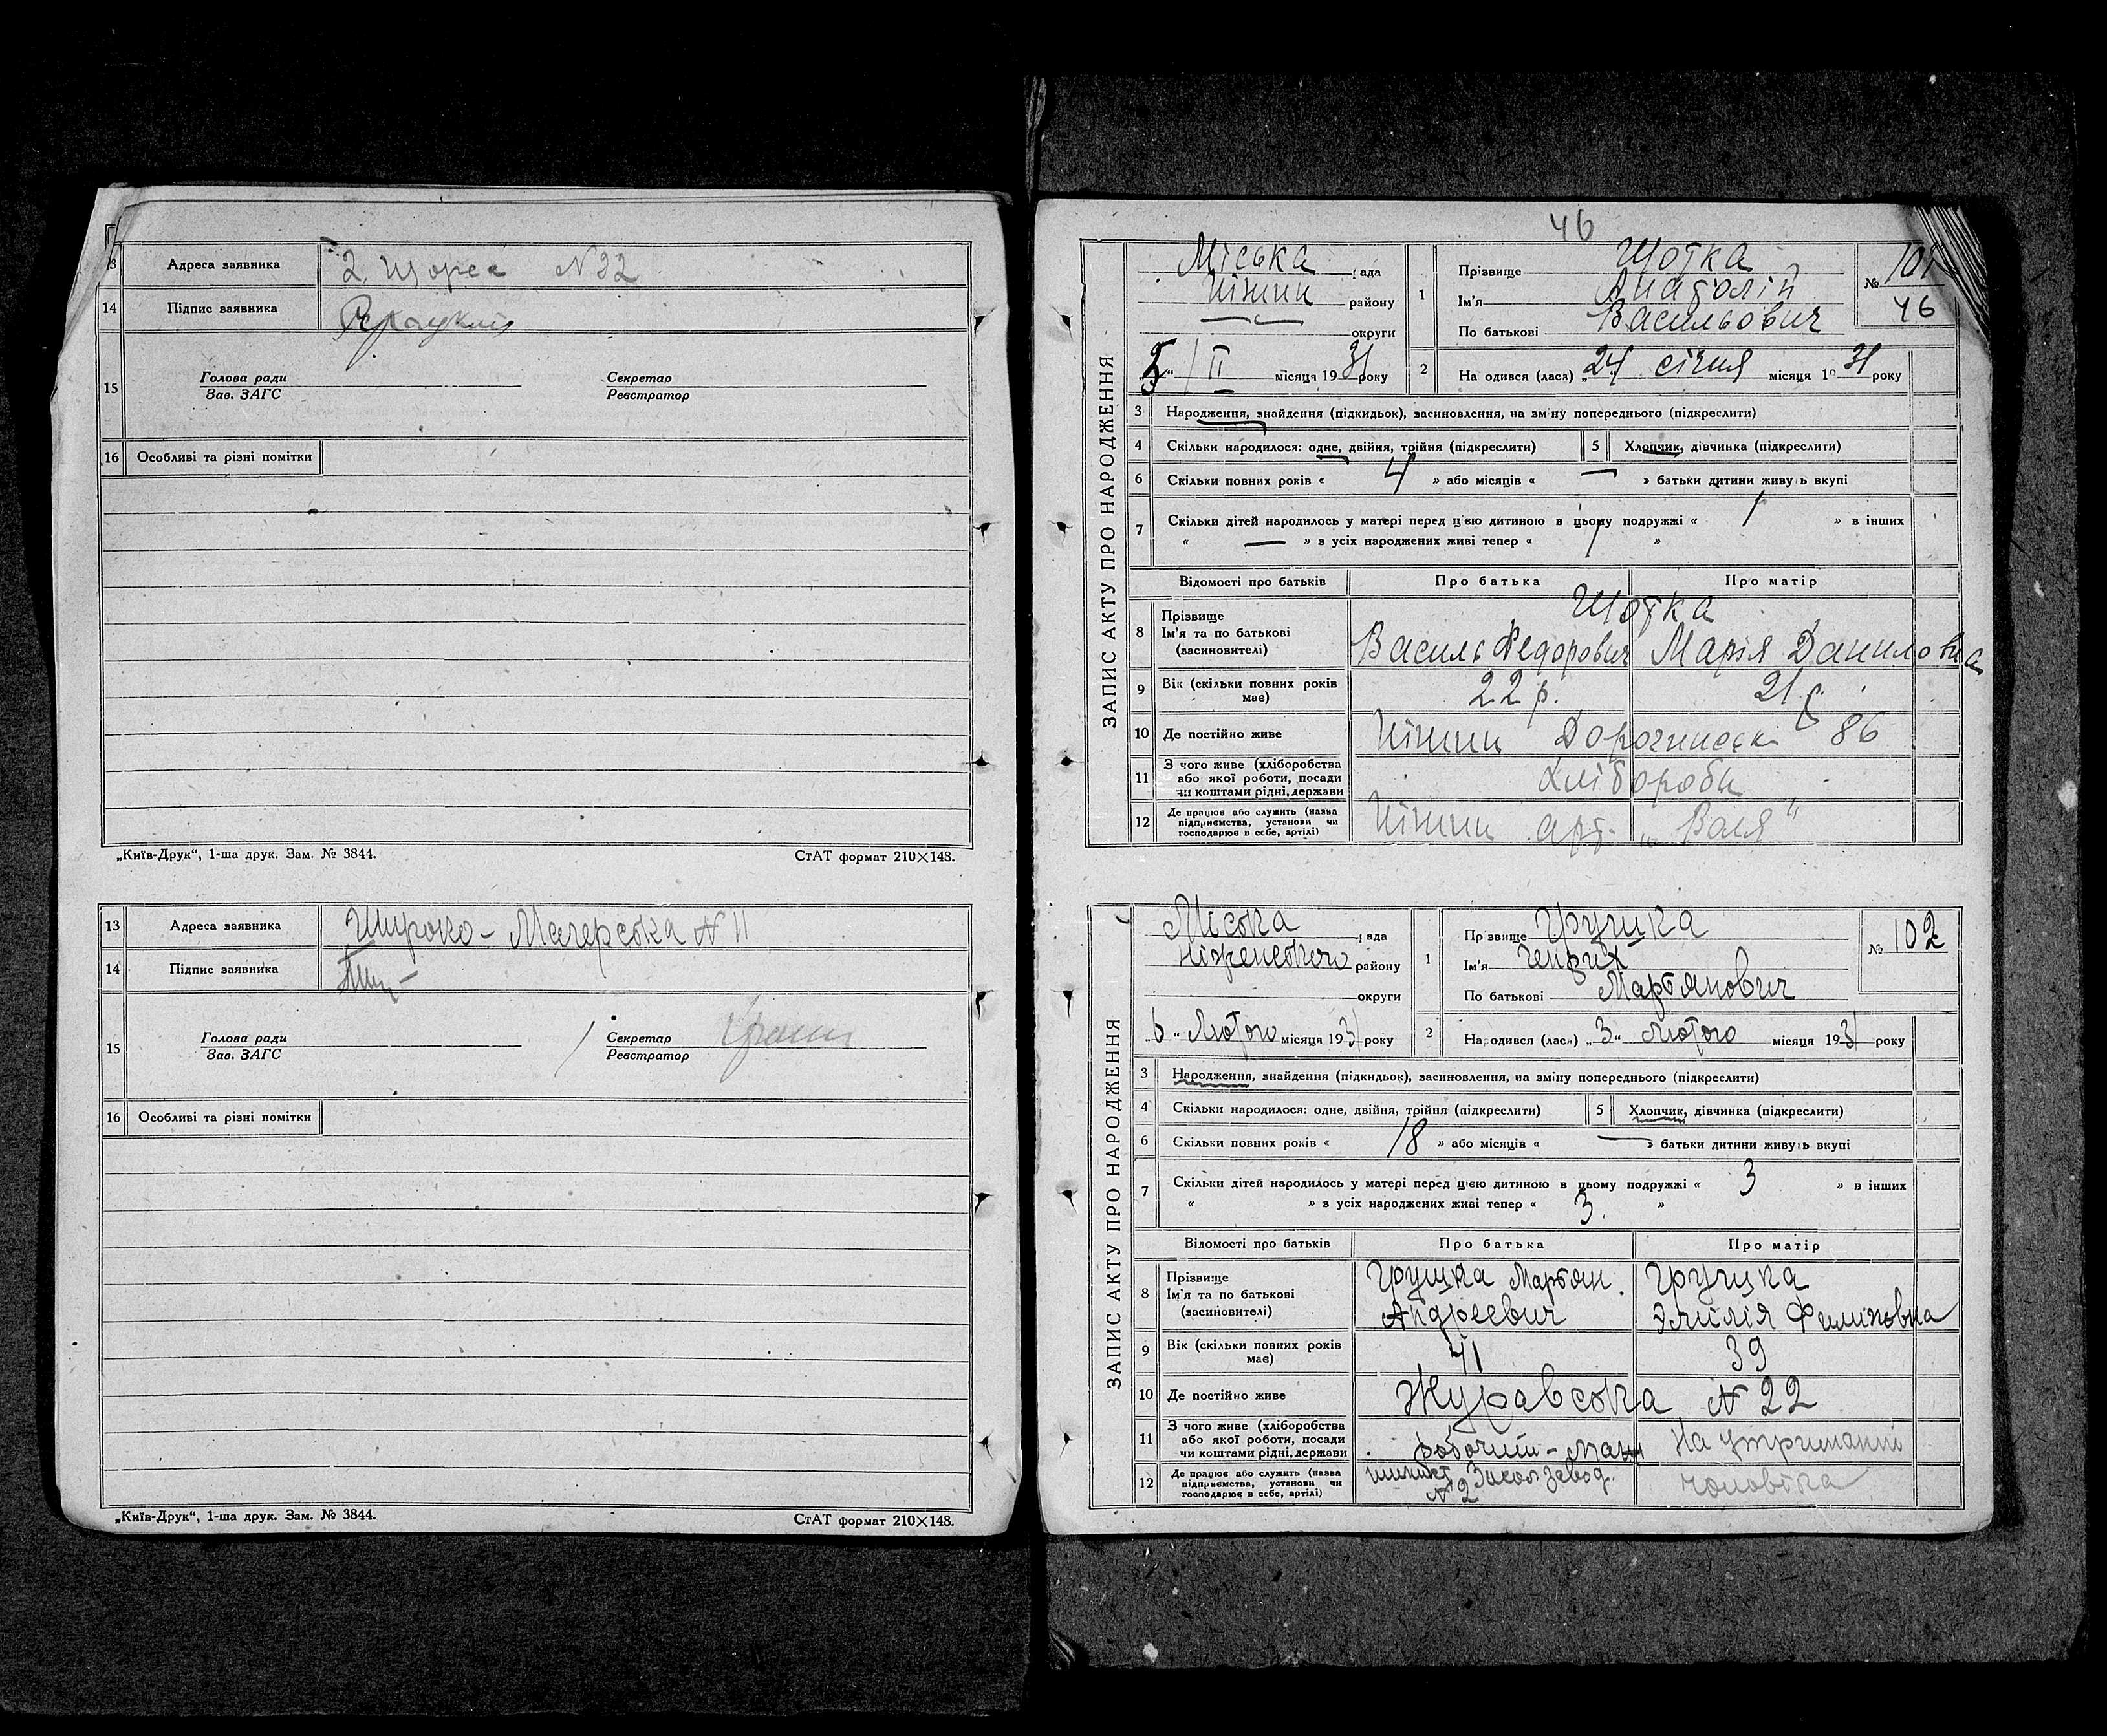 13 Адреса заявника 2. Щорса N 32
14 Підпис заявника
15 Голова ради Секретар
Зав. ЗАГС Реєстратор
16 Особливі та різні помітки
„Київ-Друк“, 1-ша друк. Зам. № 3844. СтАТ формат 210×148.
13 Адреса заявника Широко-Магерська N 11
14 Підпис заявника
15 Голова ради Секретар
Зав. ЗАГС Реєстратор
16 Особливі та різні помітки
„Київ-Друк“, 1-ша друк. Зам. № 3844. СтАТ формат 210×148.
46
ЗАПИС АКТУ ПРО НАРОДЖЕННЯ
Міська рада
Ніжин району
округи
5 “ / II місяця 1931 року
1 Прізвище Щотка
Ім'я Анатолій
По батькові Васильович
№ 101
46
2 Народився (лася) „24 січня місяця 1931 року
3 Народження, знайдення (підкидьок), засиновлення, на зміну попереднього (підкреслити)
4 Скільки народилося: одне, двійня, трійня (підкреслити) 5 Хлопчик, дівчинка (підкреслити)
6 Скільки повних років « 4 » або місяців « — » батьки дитини живуть вкупі
7 Скільки дітей народилось у матері перед цією дитиною в цьому подружжі « 1 » в інших
« — » з усіх народжених живі тепер « 1 »
Відомості про батьків Про батька Про матір
8 Прізвище Щотка
Ім'я та по батькові Василь Федорович Марія Даниловна
(засиновителі)
9 Вік (скільки повних років має) 22 р. 21 р.
10 Де постійно живе Ніжин 86
11 З чого живе (хліборобства або якої роботи, посади чи коштами рідні, держави Хлібороби
12 Де працює або служить (назва підприємства, установи чи господарює в себе, артілі) Ніжин арт. „Воля“
ЗАПИС АКТУ ПРО НАРОДЖЕННЯ
Міська рада
Ніженського району
округи
„6“ Лютого місяця 1931 року
1 Прізвище Грушка
Ім'я Генрих
По батькові Мартянович
№ 102
2 Народився (лася) „3“ Лютого місяця 1931 року
3 Народження, знайдення (підкидьок), засиновлення, на зміну попереднього (підкреслити)
4 Скільки народилося: одне, двійня, трійня (підкреслити) 5 Хлопчик, дівчинка (підкреслити)
6 Скільки повних років « 18 » або місяців « — » батьки дитини живуть вкупі
7 Скільки дітей народилось у матері перед цією дитиною в цьому подружжі « 3 » в інших
« » з усіх народжених живі тепер « 3. »
Відомості про батьків Про батька Про матір
8 Прізвище Грушка Мартян. Грушка
Ім'я та по батькові Андреевич Эмілія Филиповна
(засиновителі)
9 Вік (скільки повних років має) 41 39
10 Де постійно живе Журавська N 22
11 З чого живе (хліборобства або якої роботи, посади чи коштами рідні, держави робочий - На утриманні
12 Де працює або служить (назва підприємства, установи чи господарює в себе, артілі) завод. N 2 чоловіка